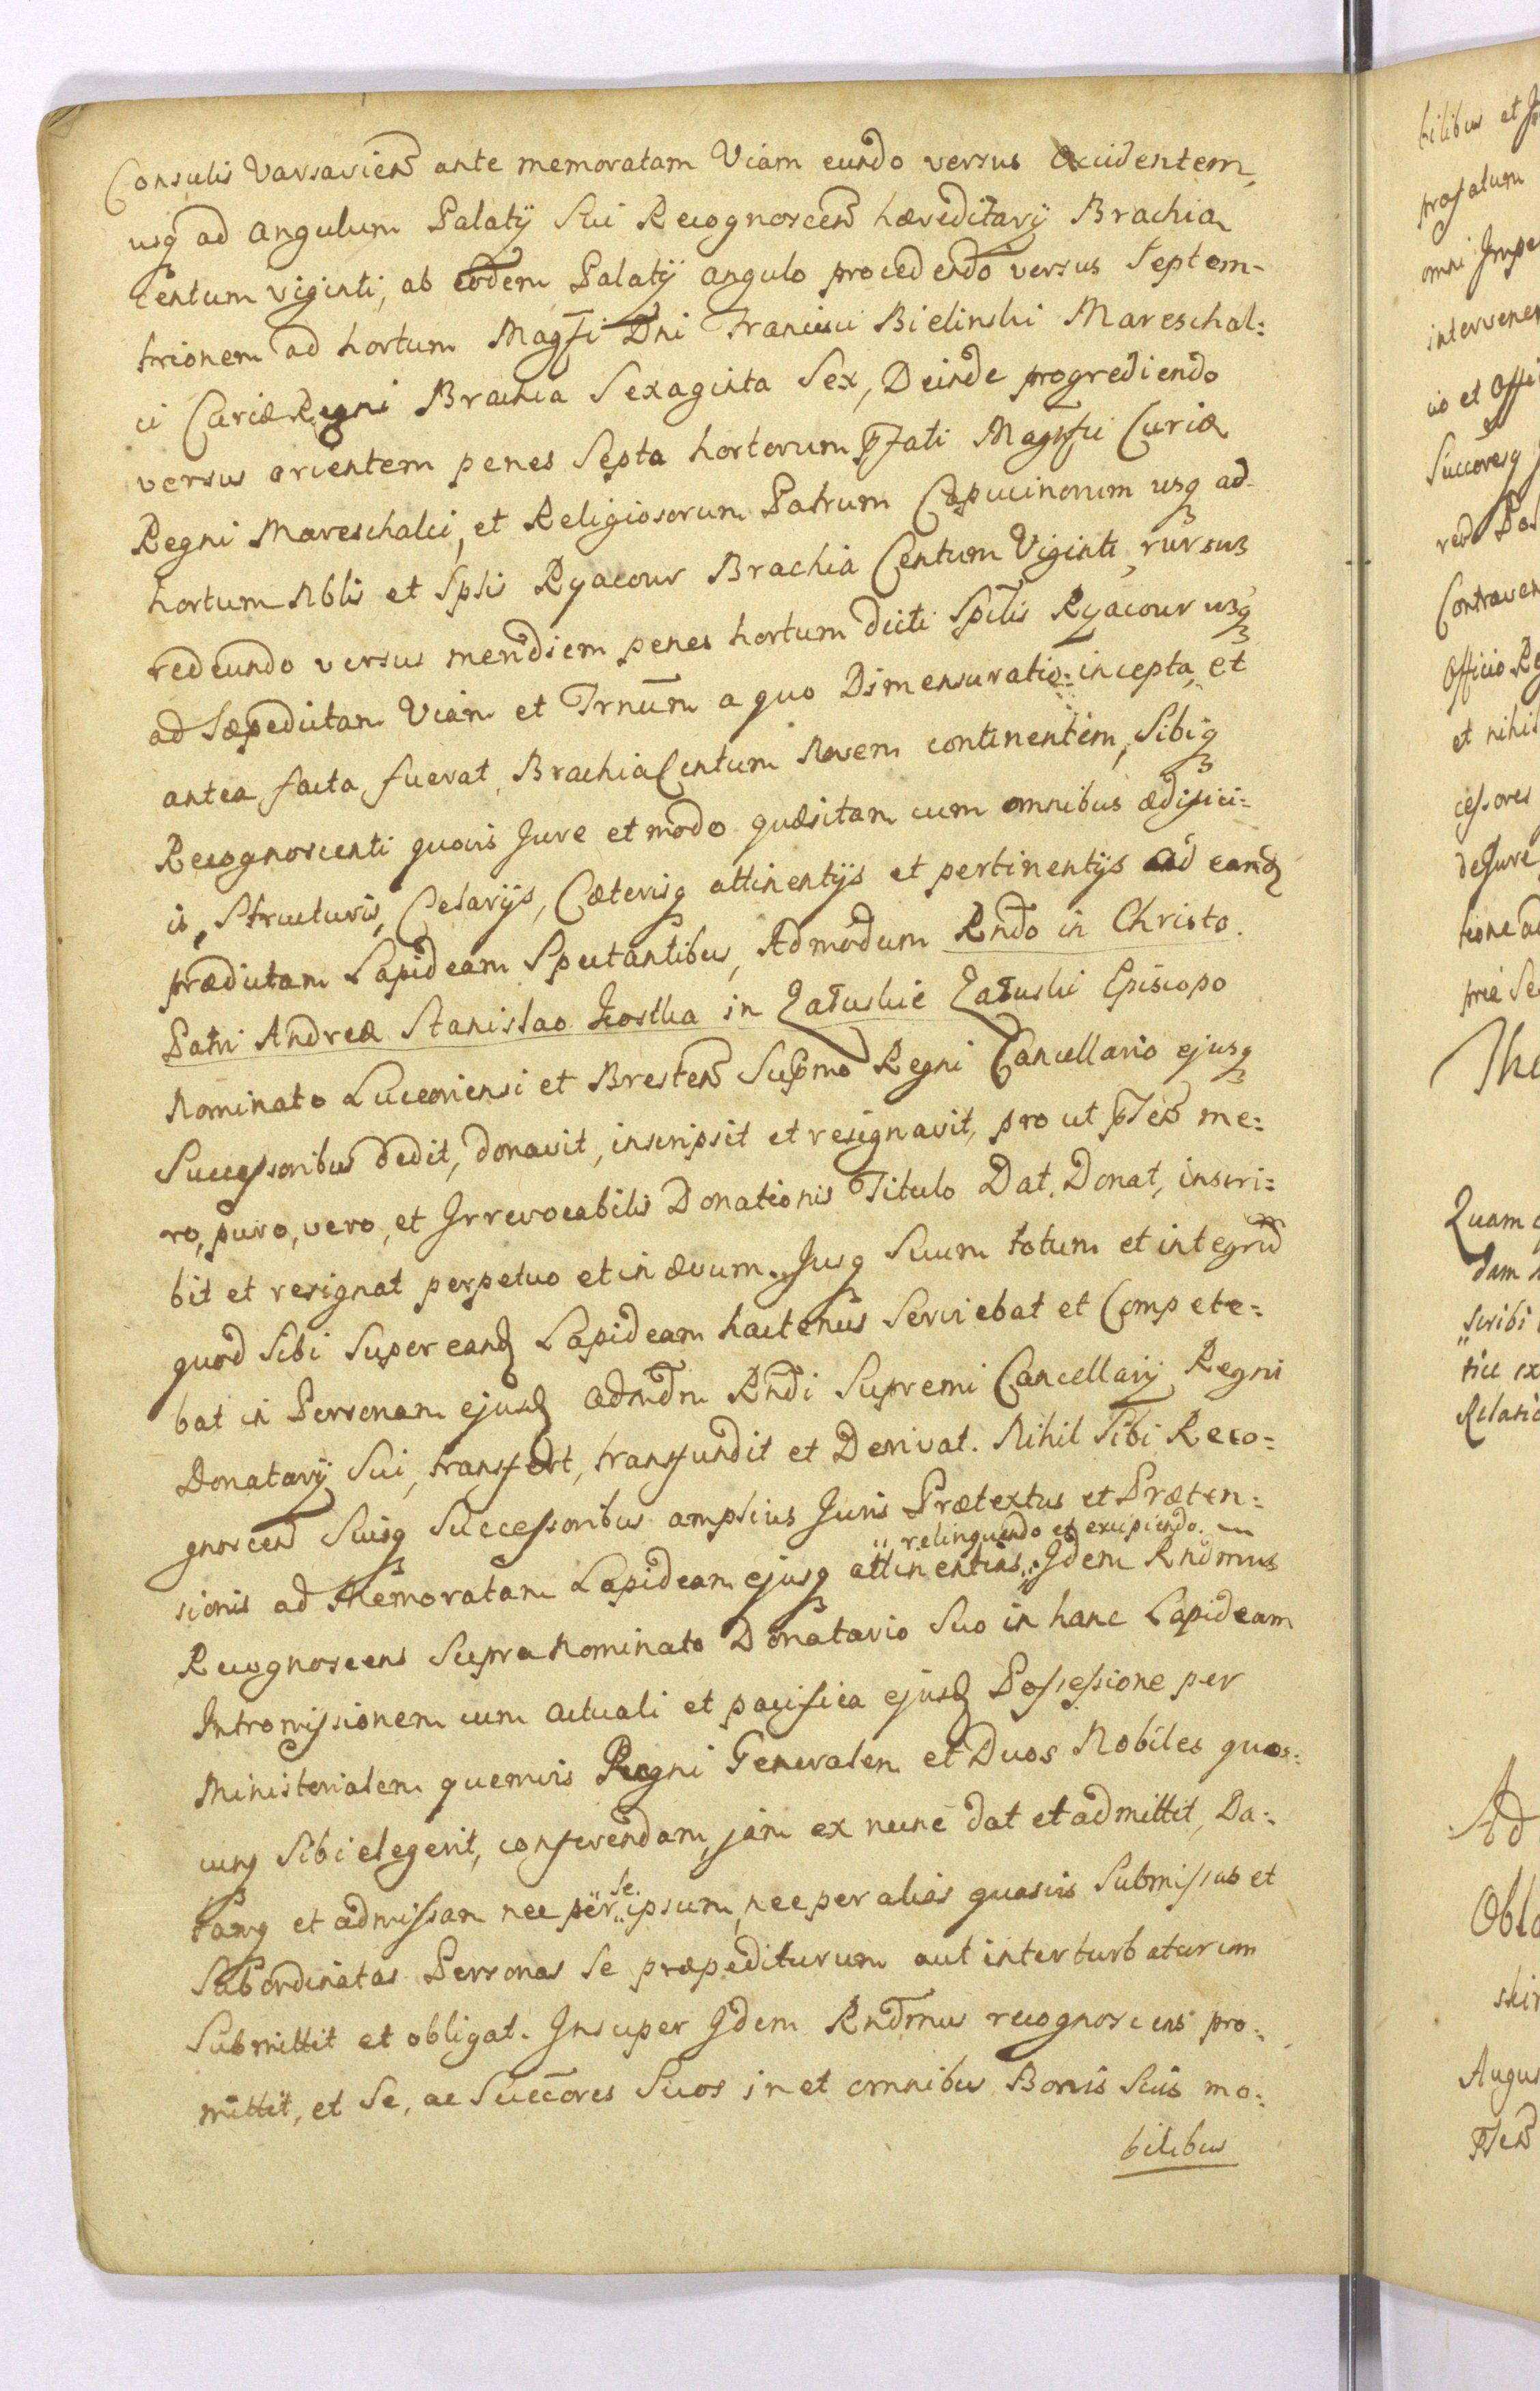 Consulis Varsavien̄ ante memoratam Viam eundo versus Occidentem,
usq̃ ad angulum Palatij Sui Recognoscen̄ hæreditarij Brachia
Centum viginti, ab eodem Palatij angulo procedendo versus Septem-
trionem ad hortum Magfi Dni Francisci Bielinski Mareschal:
ci Curiæ Regni Brachia Sexaginta Sex, Deinde progrediendo
versus orientem penes Septa hortorum p̄fati Magnfci Curiæ
Regni Mareschalci, et Religiosorum Patrum Capucinorum usq̃ ad
hortum Nblis et Splis Ryacour Brachia Centum Viginti, rursus
redeundo versus meridiem penes hortum dicti Sptlis Ryacour usq̃
ad Sæpedictam Viam et Trnūm a quo Dimensuratio: incepta, et
antea facta fuerat, Brachia Centum Novem continentem, Sibiq̃
Recognoscenti quovis Jure et modo quæsitam cum omnibus ædifici:
is, Structuris, Celarijs, Cæterisq̃ attinentijs et pertinentijs ad eandȝ
prædictam Lapideam Spectantibus, Admodum Rndo in Christo.
Patri Andreæ Stanislao Kostka in Załuskie Załuski Episcopo
Nominato Luceoriensi et Bresten̄ Supmo Regni Cancellario ejusq̃
Successoribus dedit, donavit, inscripsit et resignavit, pro ut p̄ten̄ me:
ro, puro, vero, et Irrevocabilis Donationis Titulo Dat, Donat, inscri:
bit et resignat perpetuo et in ævum. Jusq̃ Suum totum et integrū
quod Sibi Super eandȝ Lapideam hactenus Serviebat et Compete:
bat in Personam ejusdȝ admdm Rndi Supremi Cancellarij Regni
Donatarij Sui, transfert, transfundit et Derivat. Nihil Sibi Reco:
gnoscen̄ Suisq̃ Successoribus amplius Juris Prætextus et Præten:
relinquendo et excipiendo.
sionis ad Memoratam Lapideam ejusq̃ attinentias. Idem Rndmus
Recognoscens Supra Nominato Donatario Suo in hanc Lapideam
Intromissionem cum actuali et pacifica ejusdȝ Possessione per
Ministerialem quemvis Regni Generalem et Duos Nobiles quos:
cunq̃ Sibi elegerit, conferendam, jam ex nunc dat et admittit, Da:
tamq̃ et admissam nec per se ipsum, nec per alias quasvis Submissas et
Subordinatas Personas Se præpediturum aut interturbaturum
Submittit et obligat. Insuper Idem Rndmus recognoscens pro:
mittit, et Se, ac Succōres Suos in et omnibus Bonis Suis mo:
bilibus